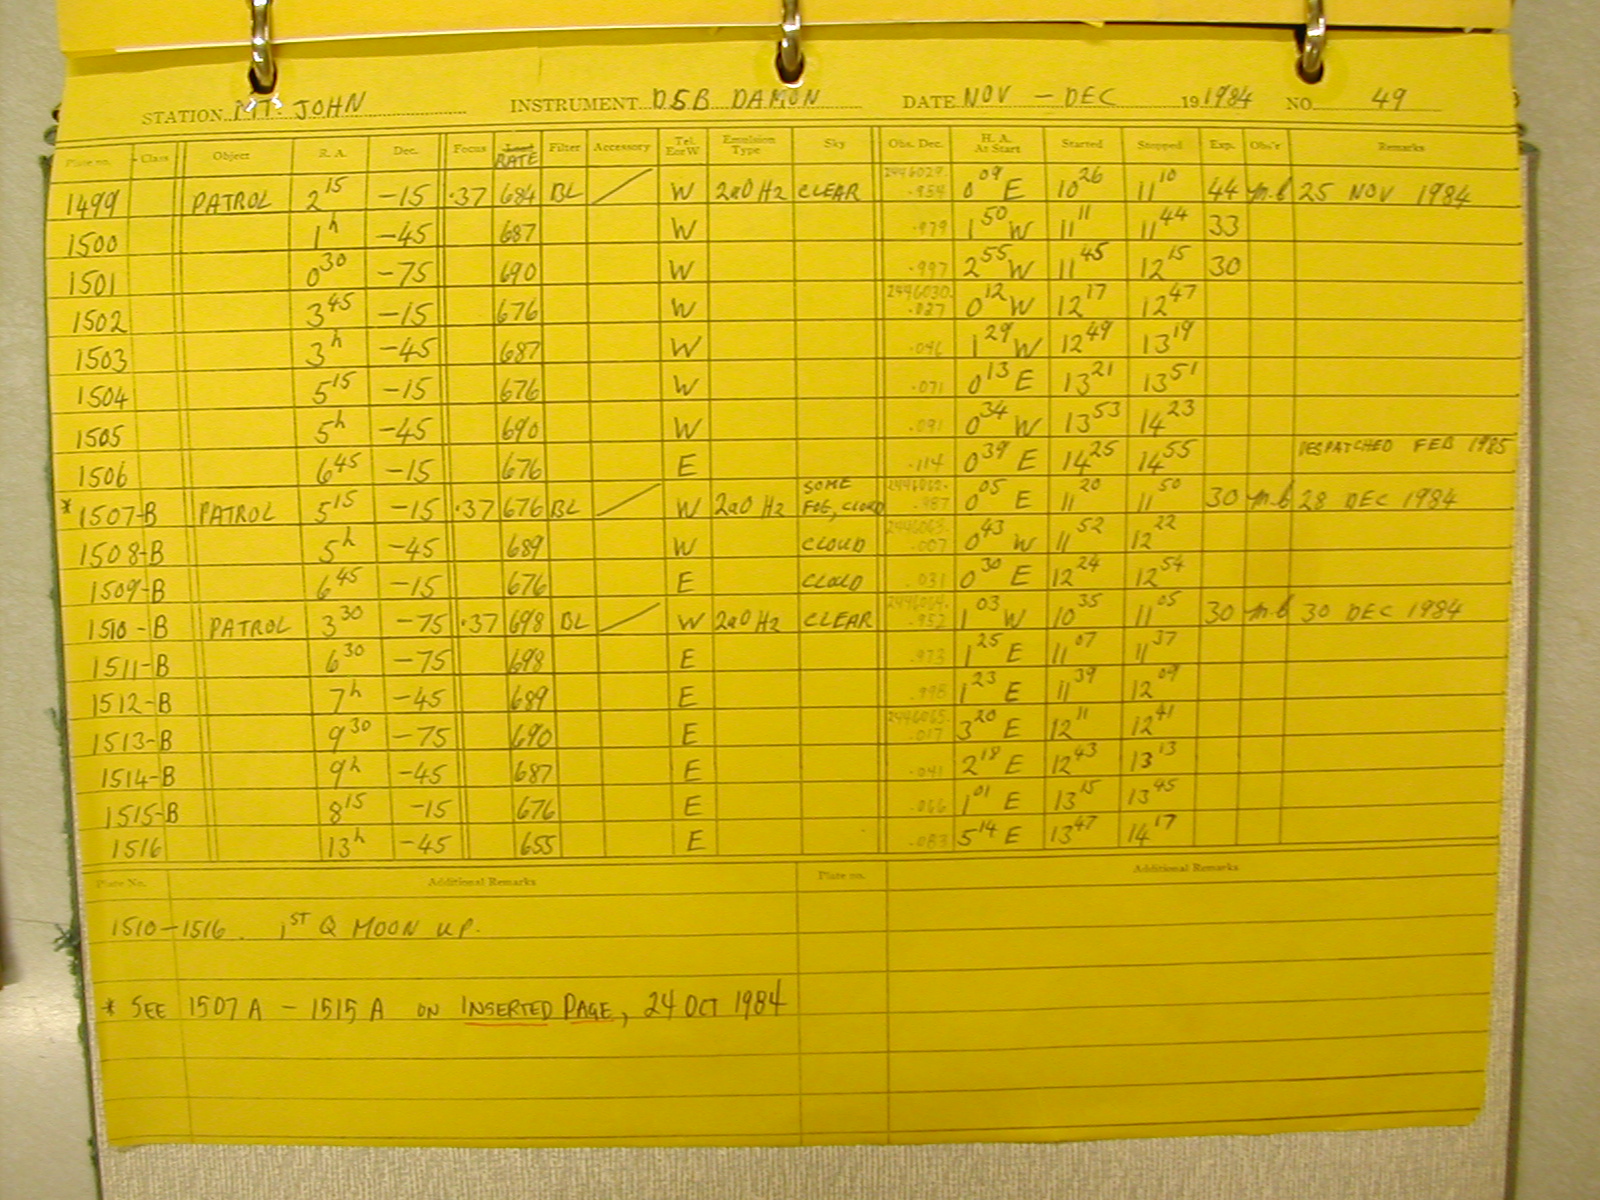 STATION MT. JOHN INSTRUMENT DSB DAMON DATE NOV - DEC 19 1984 NO. 49
Plate no. Class Object R. A. Dec. Focus RATE Filter Accessory Tel. E or W Emulsion Type Sky Obs. Dec. H. A. At Start Started Stopped Exp. Obs'r Remarks
1499 PATROL 2 15 -15 .37 684 BL W 2a0 H2 CLEAR 2446029. .954 0 09 E 10 26 11 10 44 m.b 25 NOV 1984
1500 1 h -45 687 W .979 1 50 W 11 11 11 44 33
1501 0 30 -75 690 W .997 2 55 W 11 45 12 15 30
1502 3 45 -15 676 W 2446030. .027 0 12 W 12 17 12 47
1503 3 h -45 687 W .046 1 29 W 12 49 13 19
1504 5 15 -15 676 W .071 0 13 E 13 21 13 51
1505 5 h -45 690 W .091 0 34 W 13 53 14 23
1506 6 45 -15 676 E .114 0 39 E 14 25 14 55 DESPATCHED FEB 1985
* 1507-B PATROL 5 15 -15 .37 676 BL W 2a0 H2 SOME FOG, CLOUD 2446062. .987 0 05 E 11 20 11 50 30 m.b 28 DEC 1984
1508-B 5 h -45 689 W CLOUD 2446063. .007 0 43 W 11 52 12 22
1509-B 6 45 -15 676 E CLOUD .031 0 30 E 12 24 12 54
1510-B PATROL 3 30 -75 .37 698 BL W 2a0 H2 CLEAR 2446064. .952 1 03 W 10 35 11 05 30 m.b 30 DEC 1984
1511-B 6 30 -75 698 E .973 1 25 E 11 07 11 37
1512-B 7 h -45 689 E .998 1 23 E 11 39 12 09
1513-B 9 30 -75 690 E 2446065. .017 3 20 E 12 11 12 41
1514-B 9 h -45 687 E .041 2 18 E 12 43 13 13
1515-B 8 15 -15 676 E .066 1 01 E 13 15 13 45
1516 13 h -45 655 E .083 5 14 E 13 47 14 17
Plate No. Additional Remarks Plate no. Additional Remarks
1510-1516. 1ST Q MOON UP.
* SEE 1507 A - 1515 A ON INSERTED PAGE, 24 OCT 1984